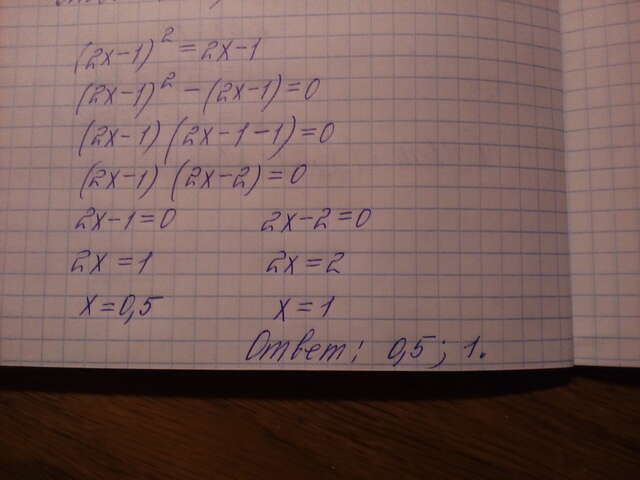 (2x-1)² = 2x-1
(2x-1)² - (2x-1) = 0
(2x-1) (2x-1-1) = 0
(2x-1) (2x-2) = 0
2x-1=0 2x-2=0
2x=1 2x=2
x=0,5 x=1
Ответ: 0,5; 1.